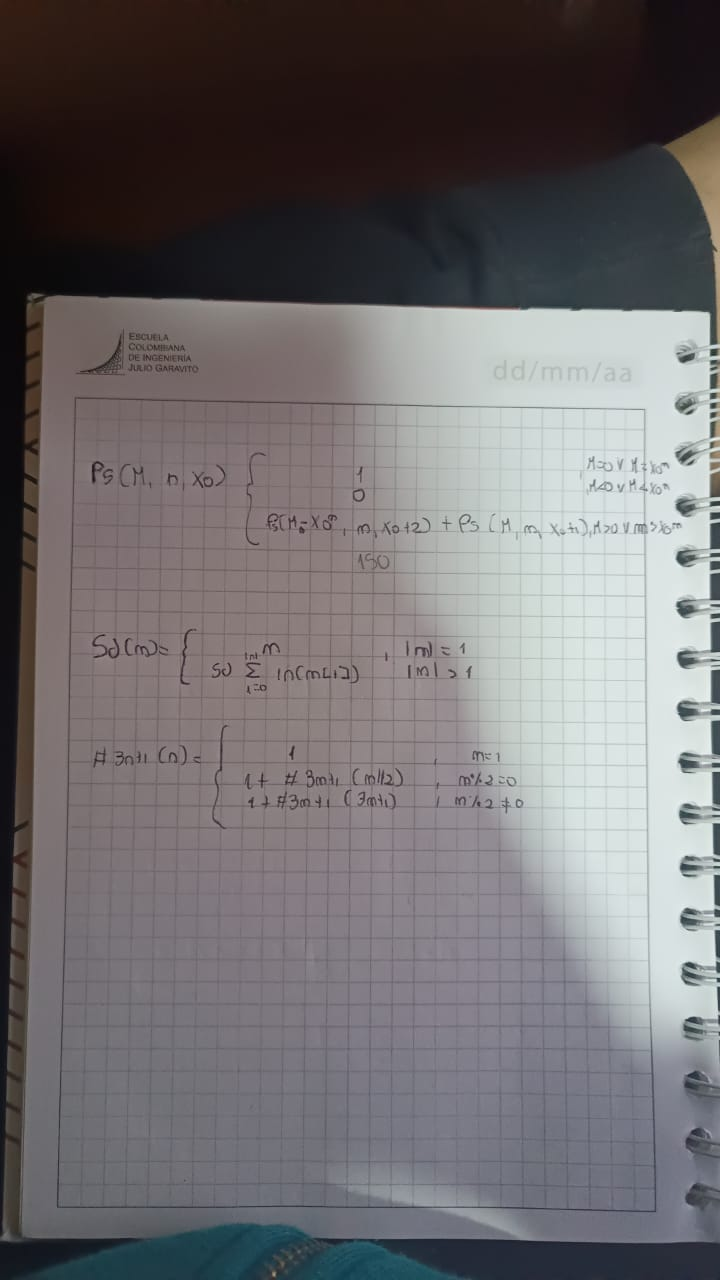 ESCUELA
COLOMBIANA
DE INGENIERÍA
JULIO GARAVITO
dd/mm/aa
PS (M, n, X0) { 1 , M=0 ∨ M=X0ⁿ
0 , M<0 ∨ M<X0ⁿ
PS(M-X0ⁿ, n, X0+2) + PS (M, n, X0+1), M>0 ∨ M>X0ⁿ
150
Sd(n)= { n , |n| = 1
Sd |n| Σ i=0 In(n[i]) |n| > 1
# 3n+1 (n) = { 1 , n=1
1 + # 3n+1 (n//2) , n%2=0
1 + #3n+1 (3n+1) , n%2 ≠0